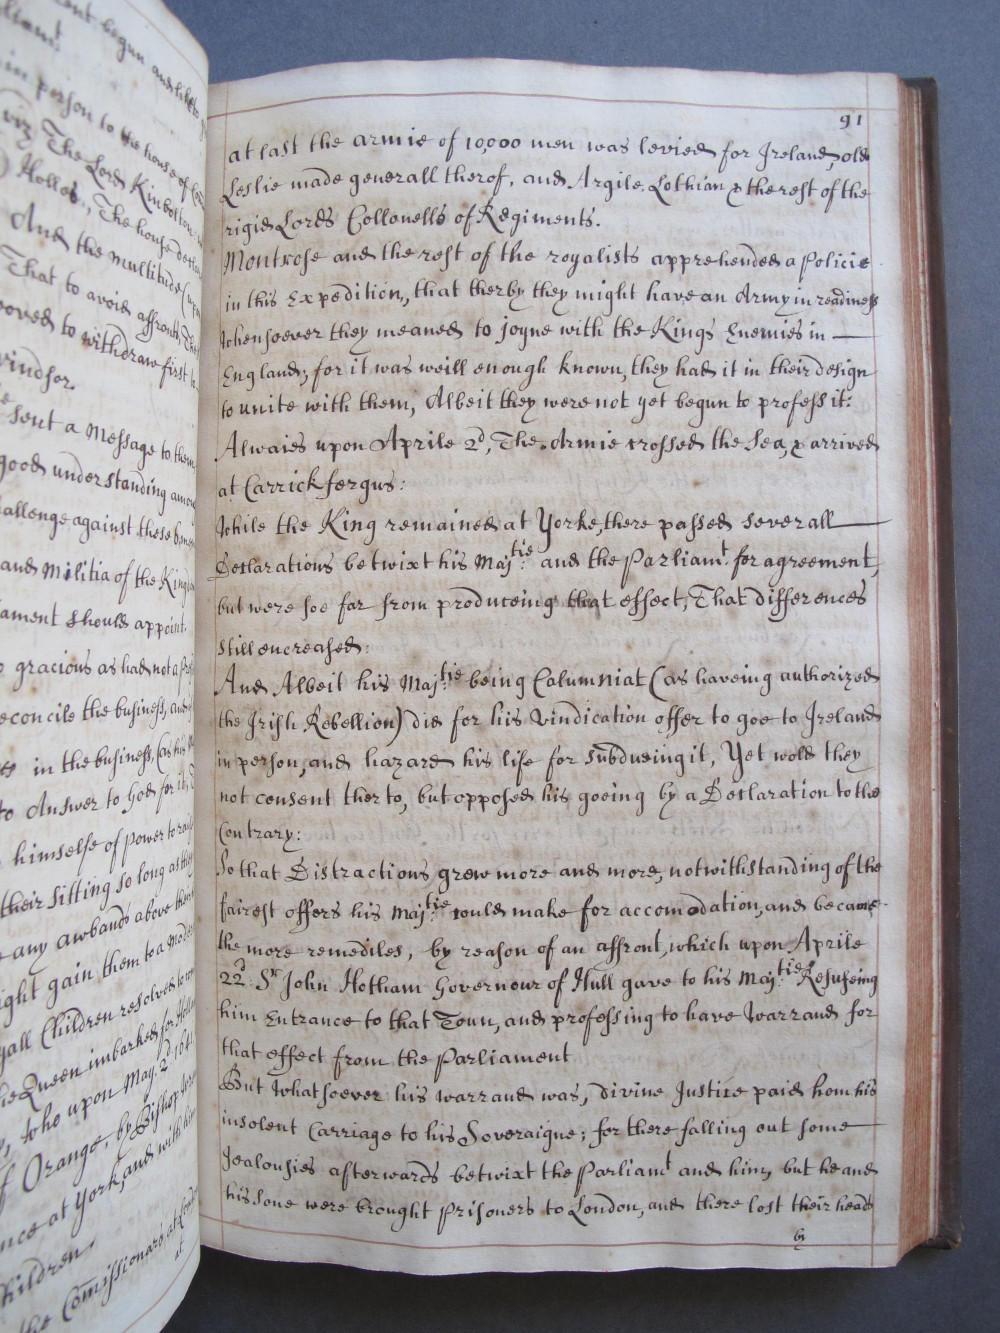 ent begun and like to
liam.t
in person to the house of Co
viz The Lord Kimbolton
Holles, The house
And the multitude (upon
That to avoid affronts, The
oved to withdraw first to
Windsor.
sent a Message to them
good understanding among
allenge against these 6 men
and Militia of the Kingd
ament should appoint.
gracious as had not a
econcile the business, and
in the business, (as his
to Answer to God for it,
himselfe of power to raise
their sitting so long as they
any awbands above them
ight gain them to a mode
yall Children resolved to
he Queen imbarked for Holl
who upon May. 2d 1641
f Orange, by Bishop
nce at York, and with him
Children.
the Com̃issionars, at London
at
91
at last the armie of 10,000 men was levied for Ireland, old
Leslie made generall therof, and Argile, Lothian & the rest of the
rigid Lords Collonells of Regiments.
Montrose and the rest of the royalists apprehended a Policie
in this Expedition, that therby they might have an Army in readiness
whensoever they meaned to joyne with the Kings Enemies in
England; for it was weill enough known, they had it in their design
to unite with them, Albeit they were not yet begun to profess it:
Alwaies upon Aprile 2d, The Armie crossed the Sea, & arrived
at Carrickfergus:
While the King remained at Yorke, there passed severall
Declarations betwixt his Maj:tie and the Parliam:t for agreement,
but were soe far from produceing that effect, That differences
still encreased:
And Albeit his Maj:tie being Calumniat (as haveing authorized
the Irish Rebellion) did for his vindication offer to goe to Ireland
in person, and hazard his life for subdueing it, Yet wold they
not consent therto, but opposed his goeing by a Declaration to the
Contrary:
So that Distractions grew more and more, notwithstanding of the
fairest offers his Maj:tie could make for accomodation, and became
the more remediles, by reason of an affront, which upon Aprile
22d: Sr John Hotham Governour of Hull gave to his Maj:tie Refuseing
him Entrance to that Toun, and professing to have Warrand for
that effect from the Parliament
But whatsoever his warrand was, divine Justice paid hom his
insolent Carriage to his Soveraigne; for there falling out some
Jealousies afterwards betwixt the Parliamt and him, but he and
his sone were brought prisoners to London, and there lost their heads
by